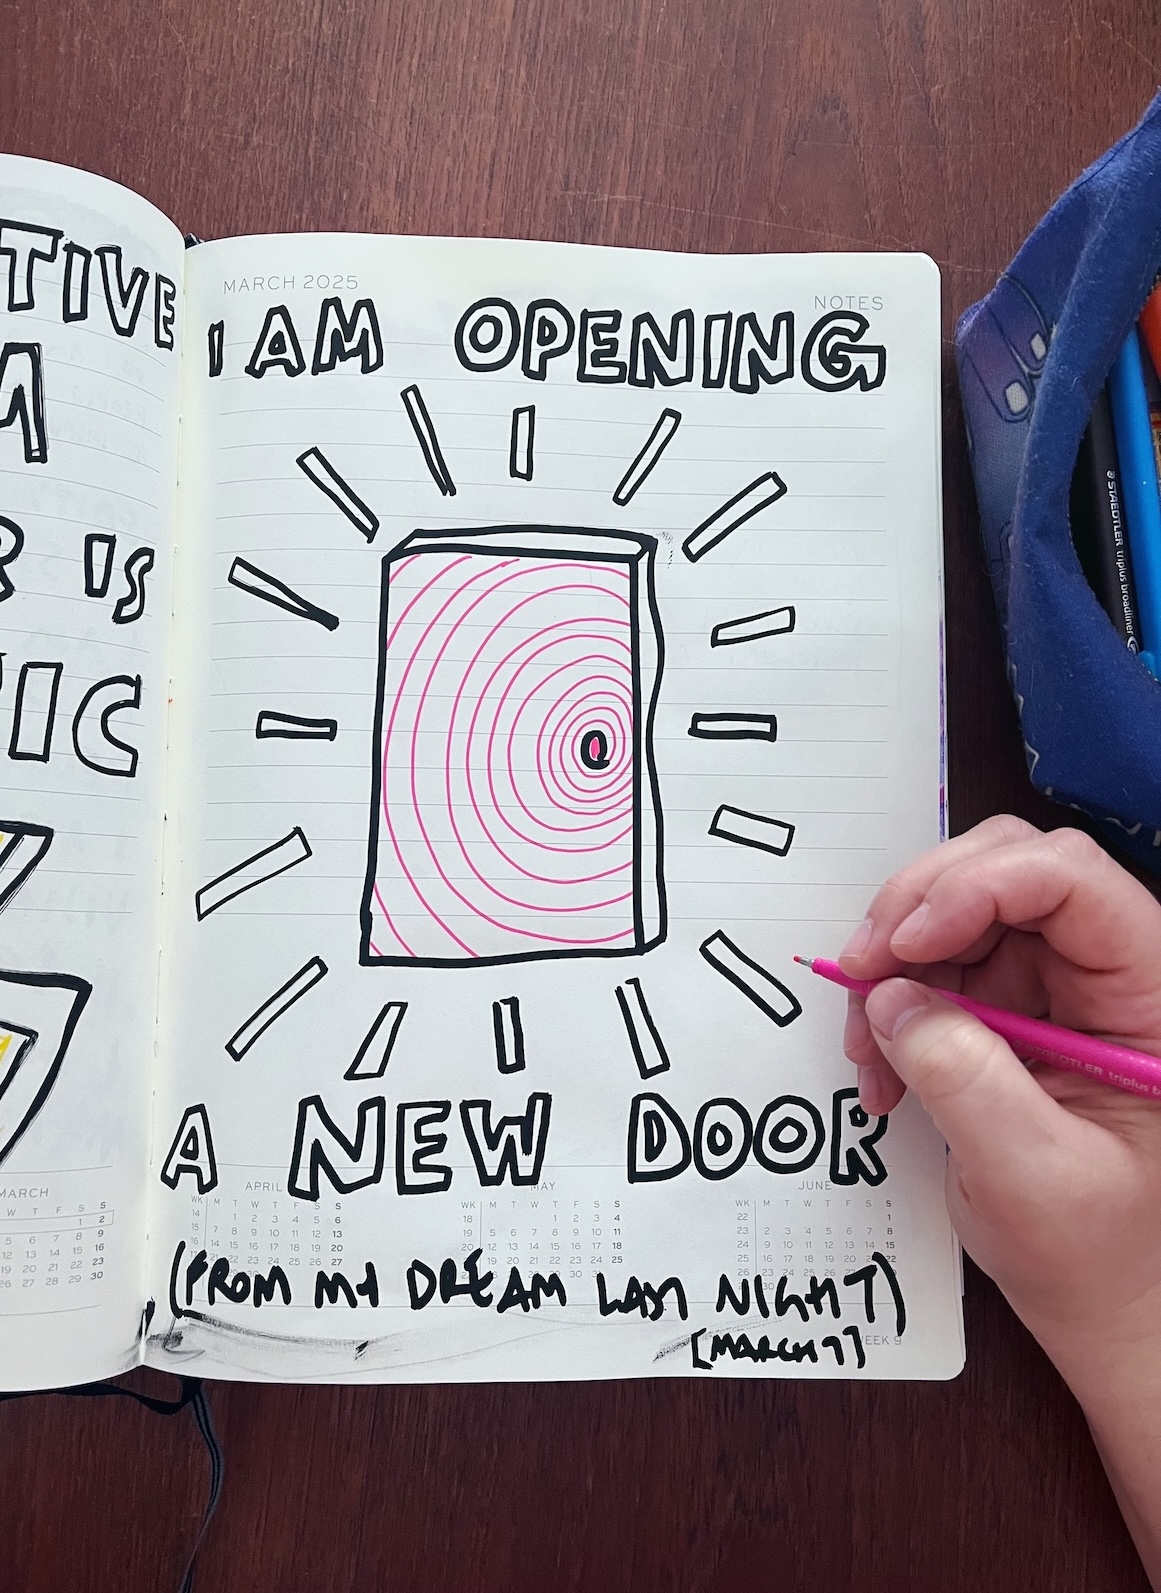 TIVE
M
R IS
PIC
MARCH
W T F S S
1 2
5 6 7 8 9
12 13 14 15 16
19 20 21 22 23
26 27 28 29 30
MARCH 2025
NOTES
I AM OPENING
A NEW DOOR
APRIL
WK M T W T F S S
14 1 2 3 4 5 6
15 7 8 9 10 11 12 13
16 14 15 16 17 18 19 20
24 25 26 27
MAY
WK M T W T F S S
18 1 2 3 4
19 5 6 7 8 9 10 11
20 12 13 14 15 16 17 18
19 20 21 22 23 24 25
JUNE
WK M T W T F S S
22 1
23 2 3 4 5 6 7 8
24 9 10 11 12 13 14 15
25 16 17 18 19 20 21 22
26
(FROM MY DREAM LAST NIGHT)
[MARCH 7]
WEEK 9
STAEDTLER triplus broadliner
STAEDTLER triplus b